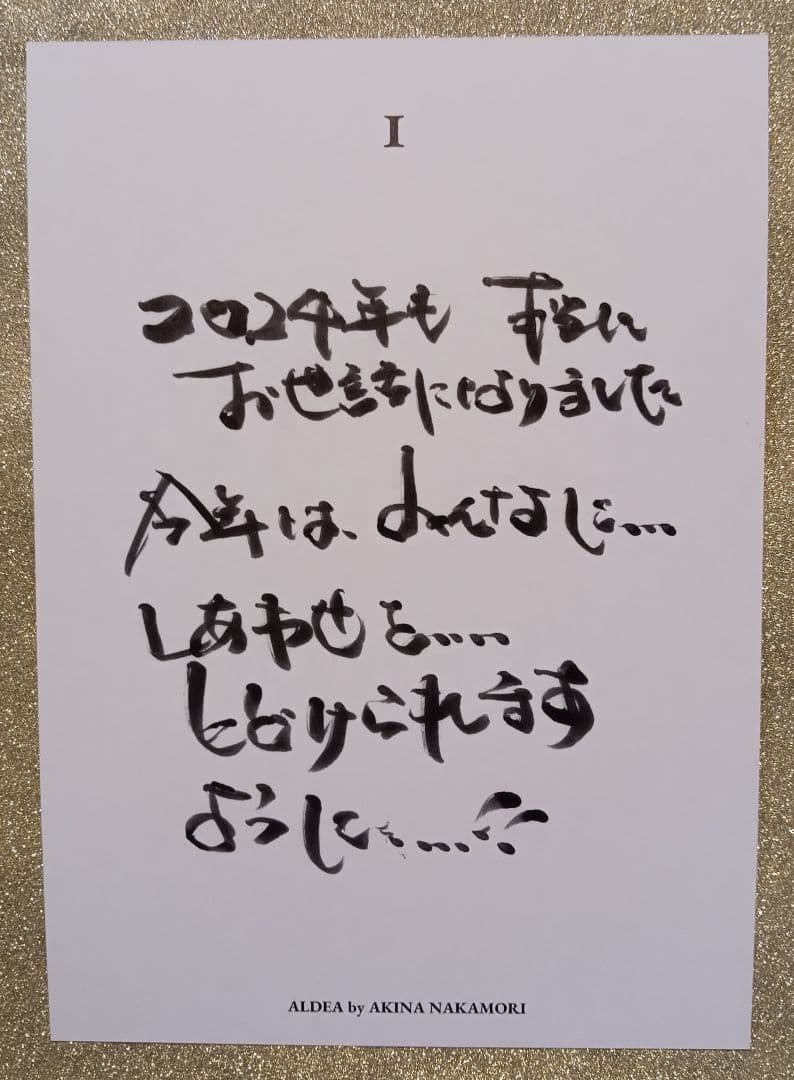 I
2024年も 本当に
お世話になりました
今年は、みんなに....
しあわせを....
とどけられます
ように....!!
ALDEA by AKINA NAKAMORI